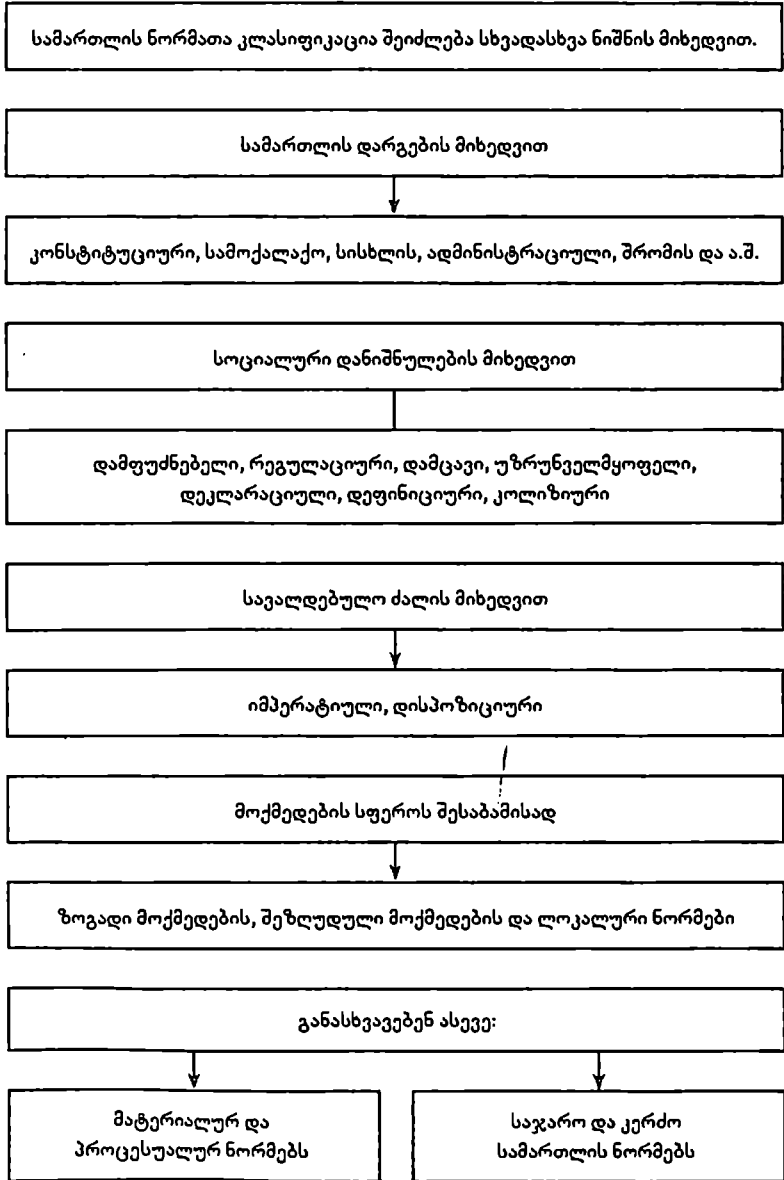 სამართლის ნორმათა კლასიფიკაცია შეიძლება სხვადასხვა ნიშნის მიხედვით.
სამართლის დარგების მიხედვით
კონსტიტუციური, სამოქალაქო, სისხლის, ადმინისტრაციული, შრომის და ა.შ.
სოციალური დანიშნულების მიხედვით
დამფუძნებელი, რეგულაციური, დამცავი, უზრუნველმყოფელი,
დეკლარაციული, დეფინიციური, კოლიზიური
სავალდებულო ძალის მიხედვით
იმპერატიული, დისპოზიციური
მოქმედების სფეროს შესაბამისად
ზოგადი მოქმედების, შეზღუდული მოქმედების და ლოკალური ნორმები
განასხვავებენ ასევე:
მატერიალურ და
პროცესუალურ ნორმებს
საჯარო და კერძო
სამართლის ნორმებს